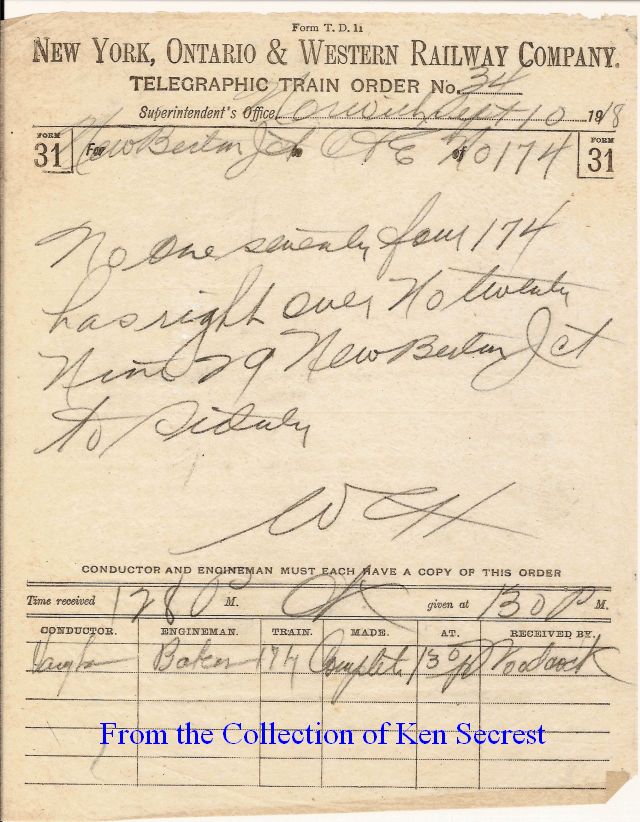 Form T. D. 11
NEW YORK, ONTARIO & WESTERN RAILWAY COMPANY.
TELEGRAPHIC TRAIN ORDER No. 34
Superintendent's Office, Norwich Sept 10 1918
FORM 31 For New Berlin Jct to C & E of No 174 FORM 31
No one seventy four 174
has right over No twenty
Nine 29 New Berlin Jct
to Sidney
CONDUCTOR AND ENGINEMAN MUST EACH HAVE A COPY OF THIS ORDER
Time received 128 P M. OK given at 130 P M.
CONDUCTOR. ENGINEMAN. TRAIN. MADE. AT. RECEIVED BY.
Vaughn Baker 174 Complete 130 P Woodcock
From the Collection of Ken Secrest